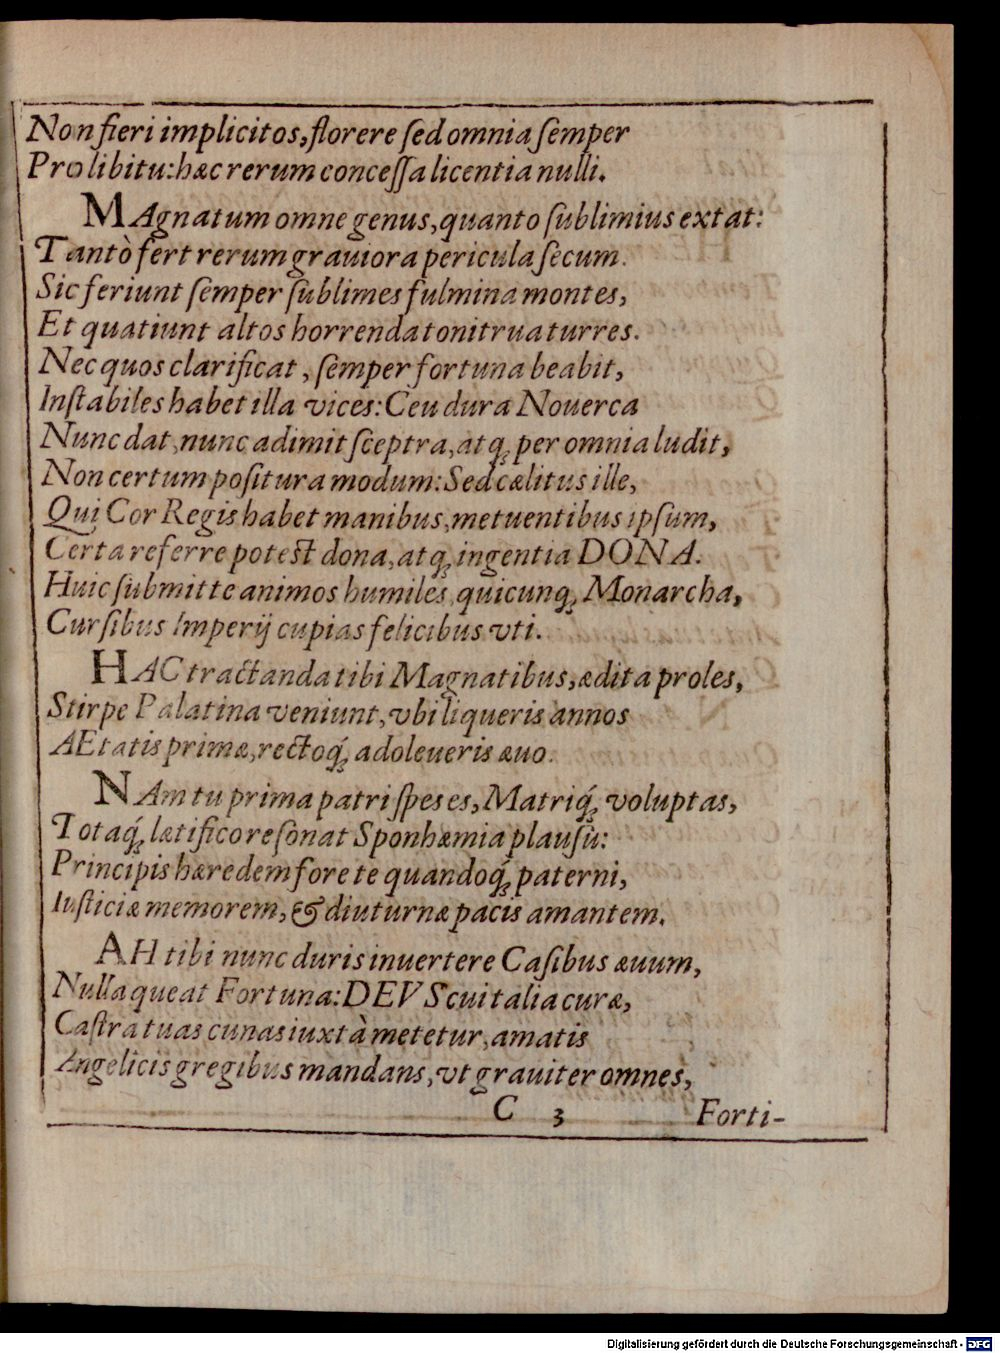 Non fieri implicitos, florere ſed omnia ſemper
Pro libitu: hæc rerum conceſſa licentia nulli.
MAgnatum omne genus, quanto ſublimius extat:
Tantò fert rerum grauiora pericula ſecum.
Sic feriunt ſemper ſublimes fulmina montes,
Et quatiunt altos horrenda tonitrua turres.
Nec quos clarificat, ſemper fortuna beabit,
Inſtabiles habet illa vices: Ceu dura Nouerca
Nunc dat, nunc adimit ſceptra, atq; per omnia ludit,
Non certum poſitura modum: Sed cælitus ille,
Qui Cor Regis habet manibus, metuentibus ipſum,
Certa referre poteſt dona, atq; ingentia DONA.
Huic ſubmitte animos humiles, quicunq; Monarcha,
Curſibus Imperij cupias felicibus vti.
HAC tractanda tibi Magnatibus, ædita proles,
Stirpe Palatina veniunt, vbi liqueris annos
AEtatis primæ, rectoq́; adoleueris æuo.
NAm tu prima patri ſpes es, Matriq́; voluptas,
Totaq́; lætifico reſonat Sponhæmia plauſu:
Principis hæredem fore te quandoq́; paterni,
Iuſticiæ memorem, & diuturnæ pacis amantem.
AH tibi nunc duris inuertere Caſibus æuum,
Nulla queat Fortuna: DEVS cui talia curæ,
Caſtra tuas cunas iuxtà metetur, amatis
Angelicis gregibus mandans, vt grauiter omnes,
C 3 Forti-
Digitalisierung gefördert durch die Deutsche Forschungsgemeinschaft - DFG